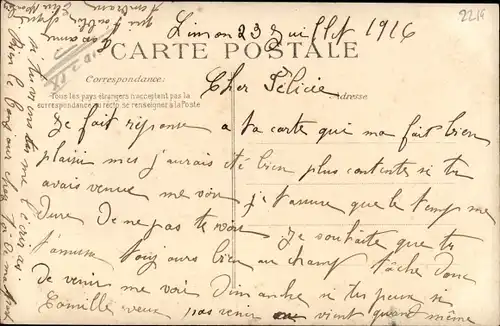 Limon 23 Juillet 1916
2216
CARTE POSTALE
Correspondance:
Tous les pays étrangers n'acceptent pas la
correspondance au recto (se renseigner à la Poste
Adresse
Cher Félicie
Je fait réponse a ta carte qui ma fait bien
plaisir mes j'aurais été bien plus contente si tu
avais venue me voir je t'assure que le temp me
Dure De ne pas te voir Je souhaite que tu
t'amuse toujours bien au champ tâche Donc
de venir me voir Dimanche si tu peux si
Camille veux pas venir vient quand même